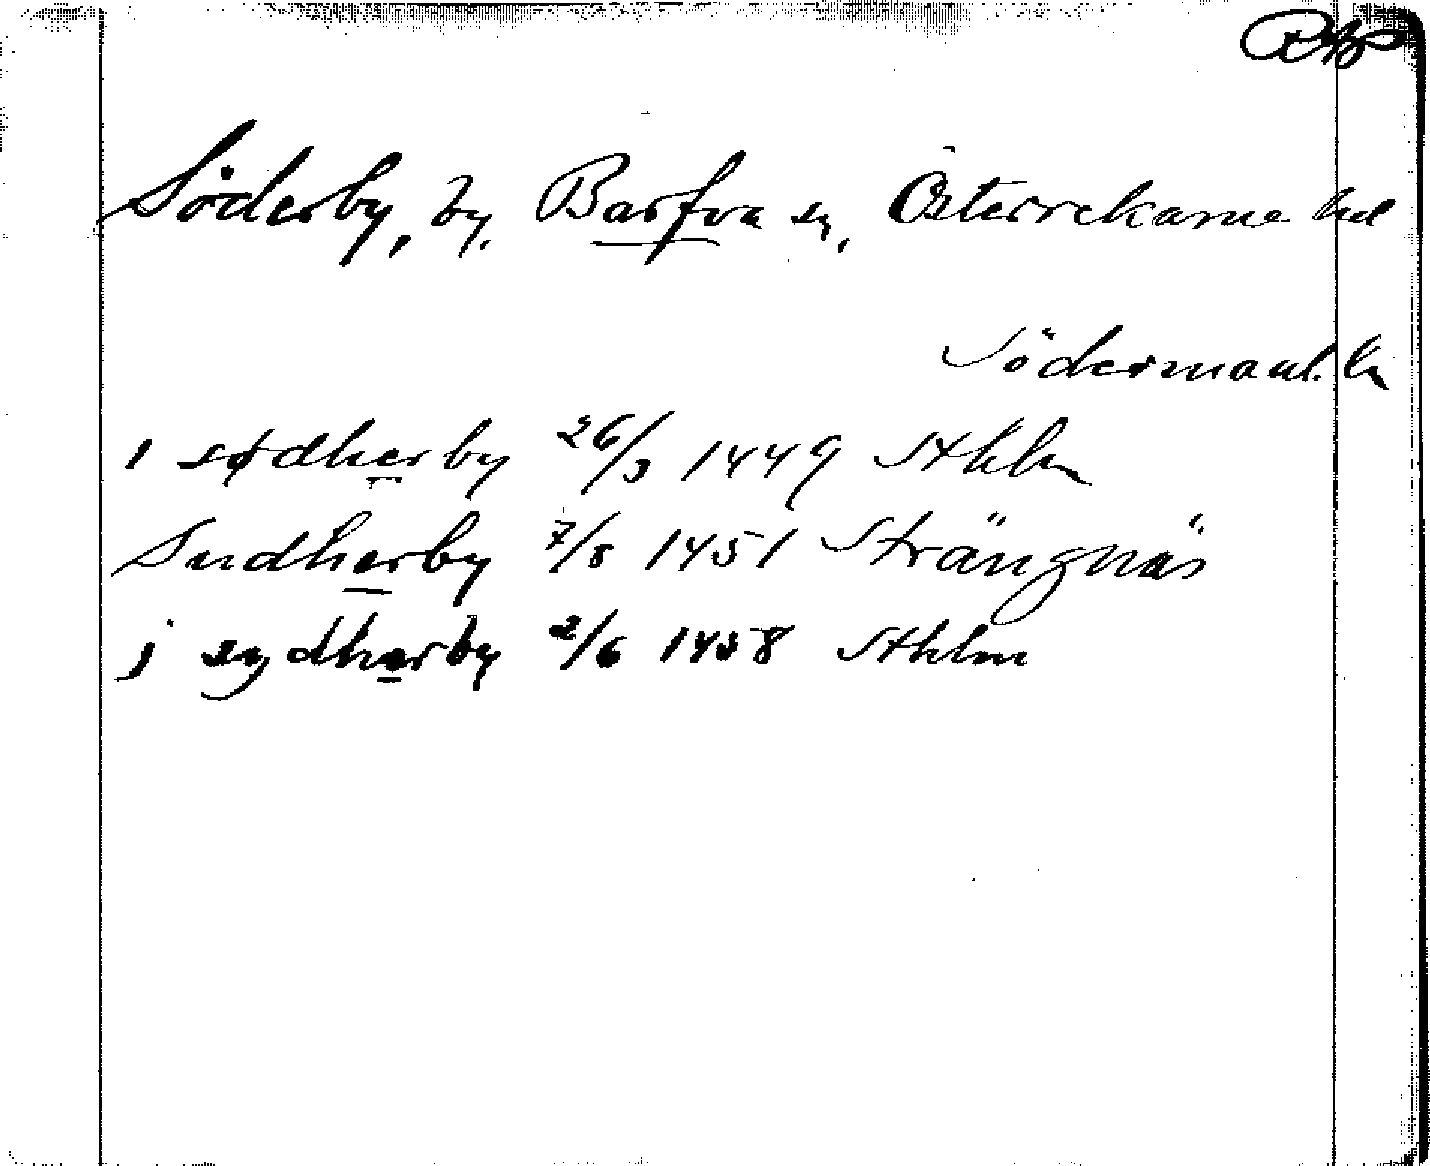 Söderby, by, Barfva sn, Österrekarne hd
Södermanl. ln
i sødherby 26/3 1449 Sthlm
Sudherby 7/8 1451 Strängnäs
j sydherby 2/6 1458 Sthlm